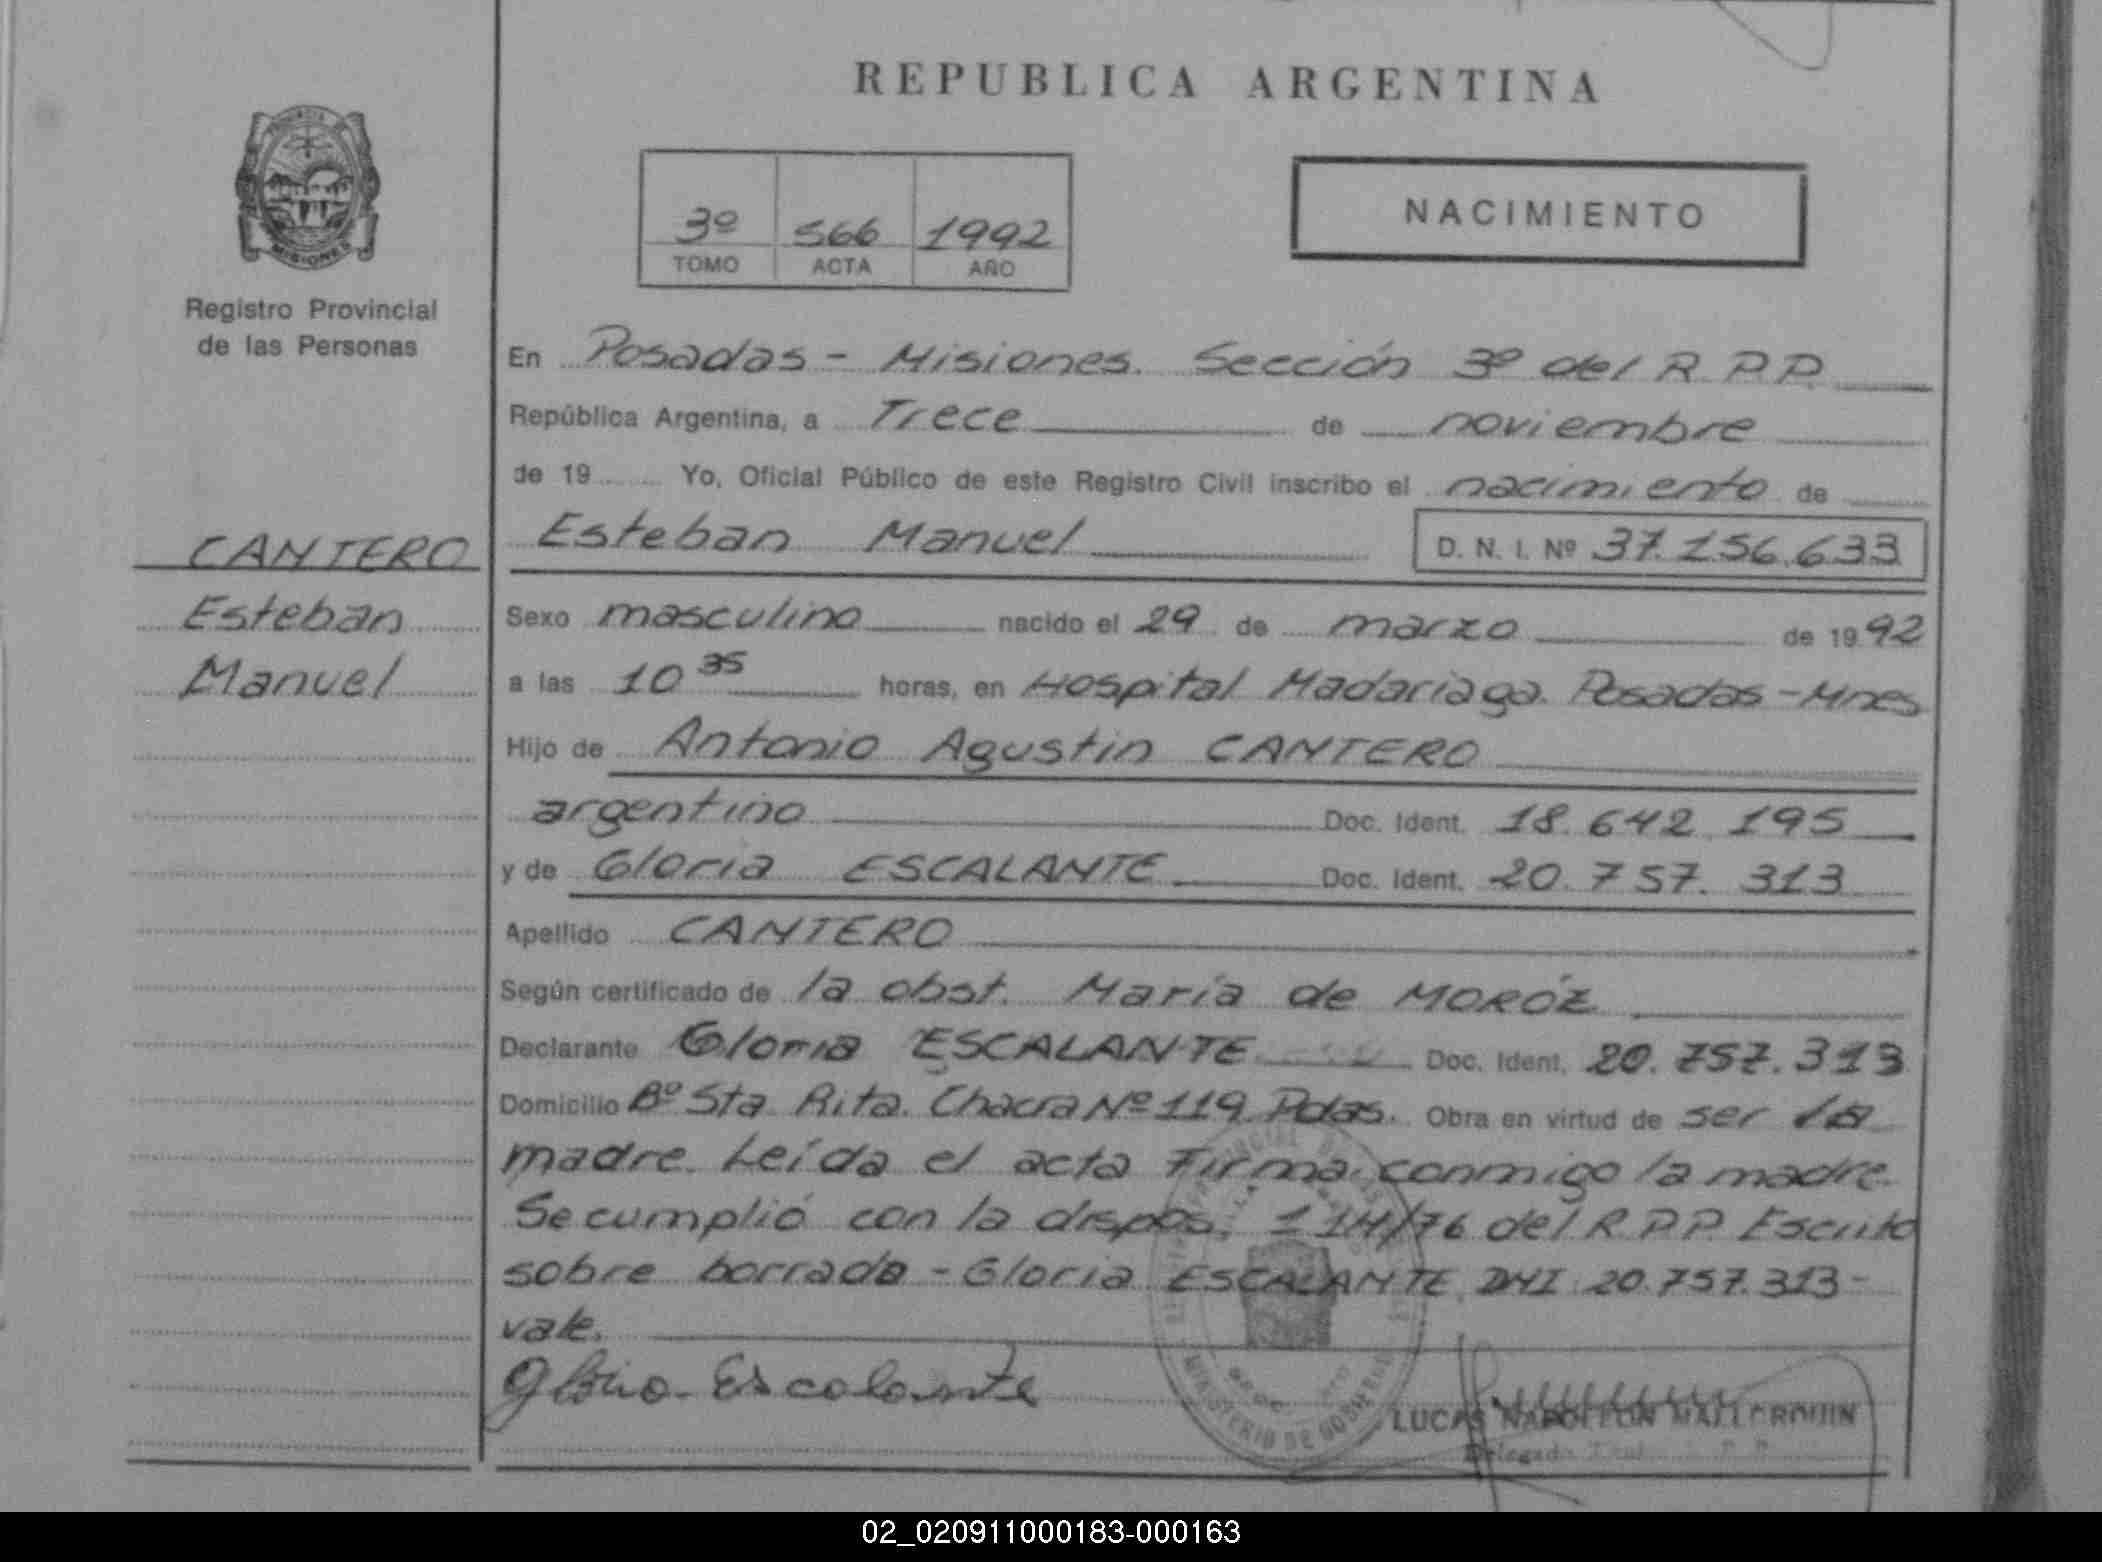 REPUBLICA ARGENTINA
3º 566 1992
TOMO ACTA AÑO
NACIMIENTO
MISIONES
Registro Provincial
de las Personas
CANTERO
Esteban
Manuel
En Posadas - Misiones. Sección 3º del R.P.P.
República Argentina, a Trece de noviembre
de 19 Yo, Oficial Público de este Registro Civil inscribo el nacimiento de
Esteban Manuel D. N. I. Nº 37.156.633
Sexo masculino nacido el 29 de marzo de 1992
a las 10 35 horas, en Hospital Madariaga. Posadas - Mnes
Hijo de Antonio Agustin CANTERO
argentino Doc. Ident. 18.642.195
y de Gloria ESCALANTE Doc. Ident. 20.757.313
Apellido CANTERO
Según certificado de la obst. María de MORÓZ
Declarante Gloria ESCALANTE Doc. Ident. 20.757.313
Domicilio Bº Sta Rita. Chacra Nº 119 Pdas. Obra en virtud de ser la
madre. Leída el acta firma conmigo la madre.
Se cumplió con la dispos. 114/76 del R.P.P. Escrito
sobre borrado - Gloria ESCALANTE DNI 20.757.313 -
vale.
Gloria Escalante
MINISTERIO DE GOBIERNO
LUCAS NAPOLEON MALLORQUIN
Delegado
02_020911000183-000163